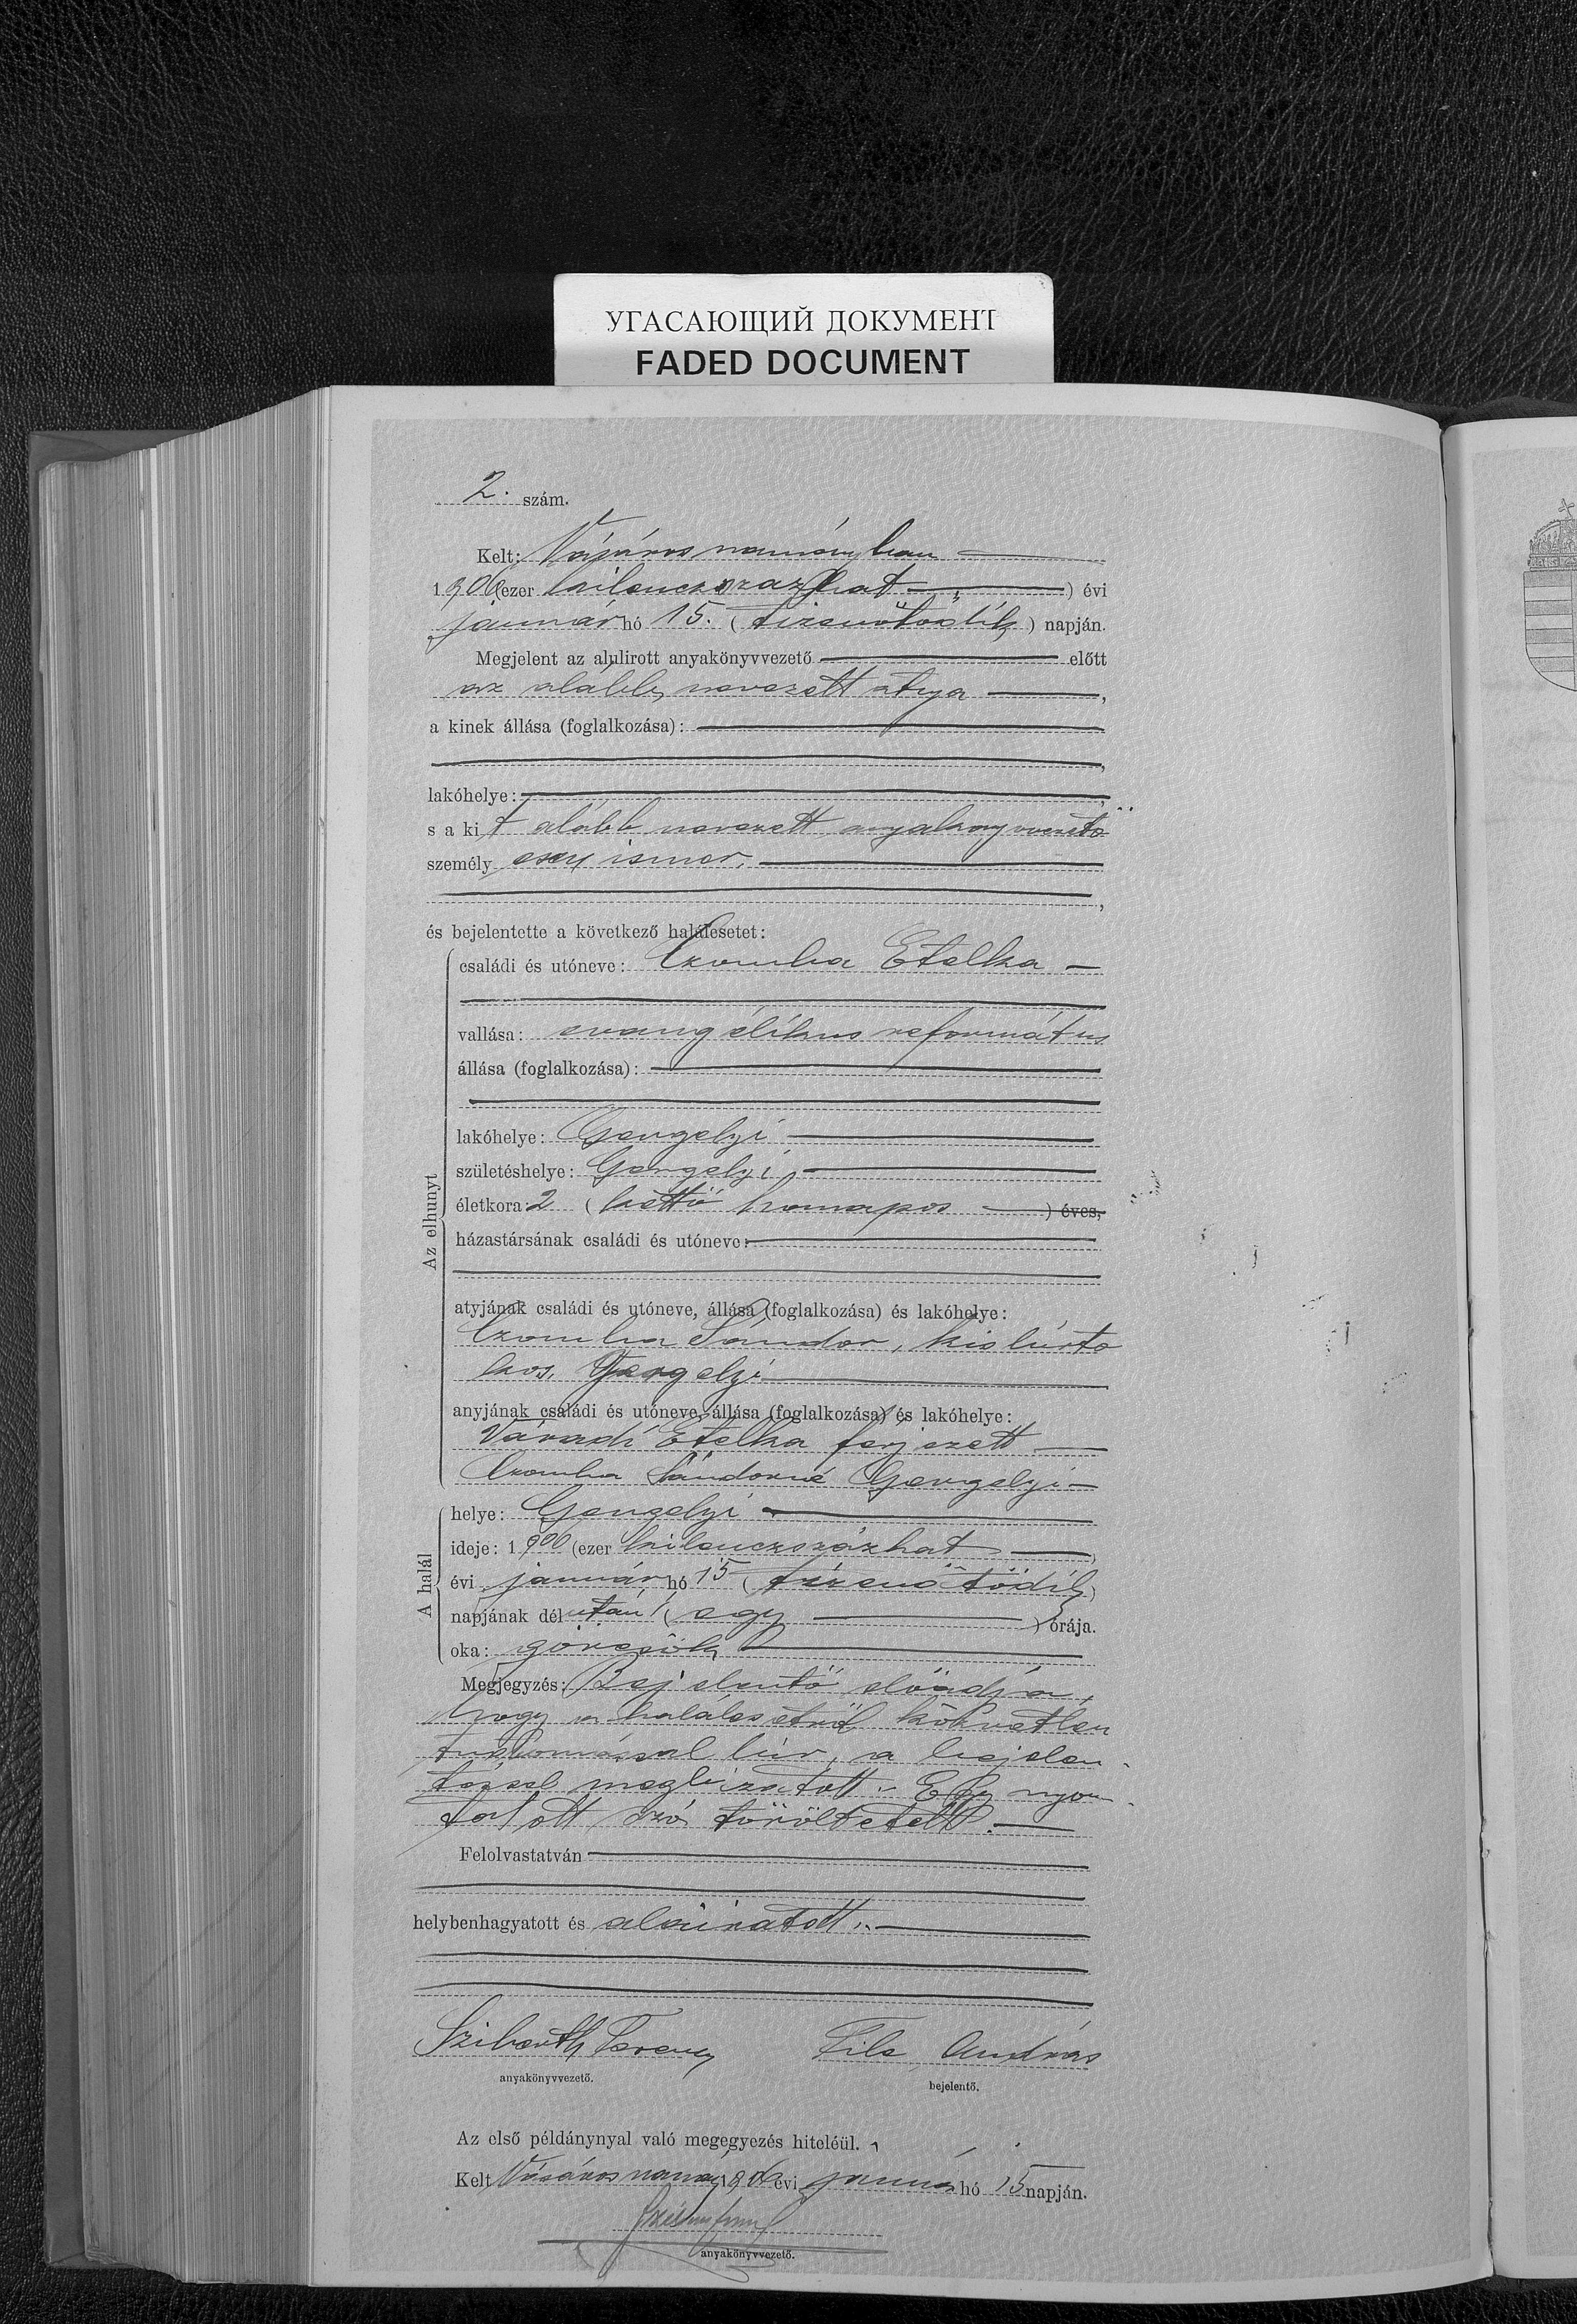 УГАСАЮЩИЙ ДОКУМЕНТ
FADED DOCUMENT
2. szám.
Kelt: Vásáros naményban
1906 (ezer kilenczszázhat) évi
január hó 15. (tizenötödik) napján.
Megjelent az alulirott anyakönyvvezető előtt
az alább nevezett atya,
a kinek állása (foglalkozása):
lakóhelye:
s a kit alább nevezett anyakönyvvezető
személyesen ismer,
és bejelentette a következő halálesetet:
Az elhunyt
családi és utóneve: Czomba Etelka
vallása: evangélikus református
állása (foglalkozása):
lakóhelye: Gergelyi
születéshelye: Gergelyi
életkora: 2 (kettő honapos) éves,
házastársának családi és utóneve:
atyjának családi és utóneve, állása (foglalkozása) és lakóhelye:
Czomba Sándor, kisbirto
kos, Gergelyi
anyjának családi és utóneve, állása (foglalkozása) és lakóhelye:
Váradi Etelka ferjezett
Czomba Sándorné Gergelyi
A halál
helye: Gergelyi
ideje: 1906 (ezer kilenczszázhat)
évi január hó 15 (tizenötödik)
napjának délután 1 (egy) órája.
oka: görcsök
Megjegyzés: Bejelentő előadja,
hogy a halálesetről közvetlen
tudomással bir, a bejelen-
téssel megbizatott. Egy nyom-
tatott szó töröltetett.
Felolvastatván
helybenhagyatott és aláiratott.
Ferencz András
anyakönyvvezető. bejelentő.
Az első példánynyal való megegyezés hiteléül.
Kelt Vásárosnamény 1906 évi január hó 15 napján.
anyakönyvvezető.